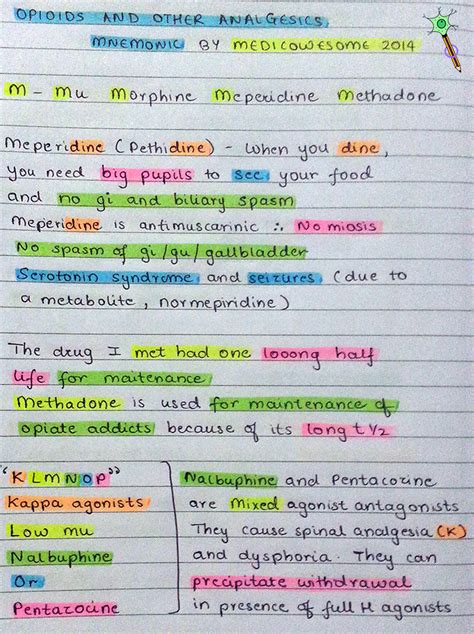 OPIOIDS AND OTHER ANALGESICS
MNEMONIC BY MEDICOWESOME 2014
M - Mu Morphine Meperidine Methadone
Meperidine (Pethidine) - When you dine,
you need big pupils to see your food
and no gi and biliary spasm
Meperidine is antimuscarinic ∴ No miosis
No spasm of gi/gu/gallbladder
Serotonin syndrome and seizures (due to
a metabolite, normepiridine)
The drug I met had one looong half
life for maitenance
Methadone is used for maintenance of
opiate addicts because of its long t ½
"KLMNOP"
Kappa agonists
Low mu
Nalbuphine
Or
Pentazocine
Nalbuphine and Pentazocine
are Mixed agonist antagonists
They cause spinal analgesia (K)
and dysphoria. They can
precipitate withdrawal
in presence of full M agonists